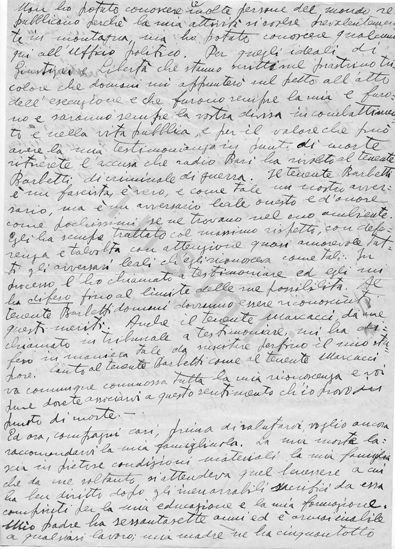 Non ho potuto conoscere molte persone del mondo re
pubblicano perchè la mia attività si svolse prevalentemen
te in montagna, ma ho potuto conoscere qualcuno
qui all'Ufficio politico. Per quegli ideali di
Giustizia e Libertà che stanno scritti nel piastrino tri
colore che domani mi appunterò sul petto all'atto
dell'esecuzione e che furono sempre la mia e furo-
no e saranno sempre la vostra divisa in combattimen
to e nella vita pubblica e per il valore che può
avere la mia testimonianza in punto di morte
ritirerete l'accusa che radio Bari ha rivolto al tenente
Barbetti di criminale di guerra. Il tenente Barbetti
è un fascista, è vero, e come tale un nostro avver-
sario, ma è un avversario leale onesto e d'onore
come pochissimi se ne trovano nel suo ambiente.
Egli ha sempre trattato col massimo rispetto, con defe-
renza e talvolta con attenzione quasi amorevole tut-
ti gli avversari leali che egli riconosceva come tali. In
processo, l'ho chiamato a testimoniare ed egli mi
ha difeso fino al limite delle sue possibilità. Al
tenente Barbetti domani dovranno essere riconosciuti
questi meriti. Anche il tenente Marcacci, da me
chiamato in tribunale a testimoniare, mi ha di-
feso in maniera tale da suscitare perfino il mio stu-
pore. Tanto al tenente Barbetti come al tenente Marcacci
va comunque commossa tutta la mia riconoscenza e voi
pure dovete associarvi a questo sentimento ch'io provo in
punto di morte. –
Ed ora, compagni cari, prima di salutarvi, voglio ancora
raccomandarvi la mia famigliola. La mia morte la-
scia in pietose condizioni materiali la mia famiglia
che da me soltanto, si attendeva quel benessere a cui
ha ben diritto dopo gli inenarrabili sacrifici da essa
compiuti per la mia educazione e la mia formazione.
Mio padre ha sessantasette anni ed è ormai inabile
a qualsiasi lavoro; mia madre ne ha cinquantotto